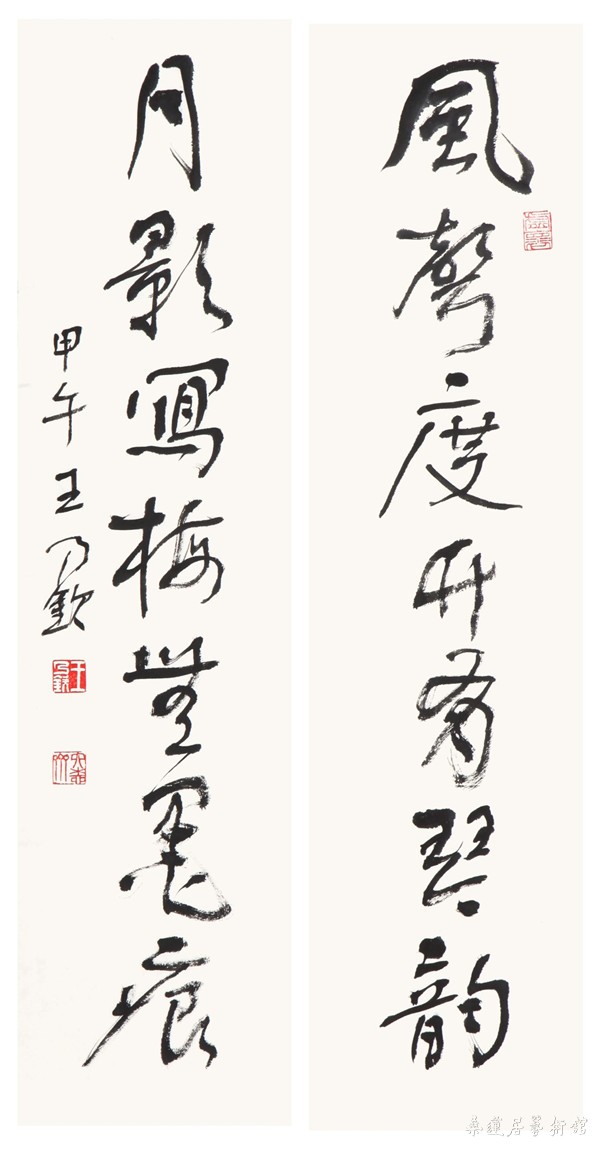 風聲度竹有琴韵
月影寫梅無墨痕
甲午王乃欽
桑蓮居藝術館